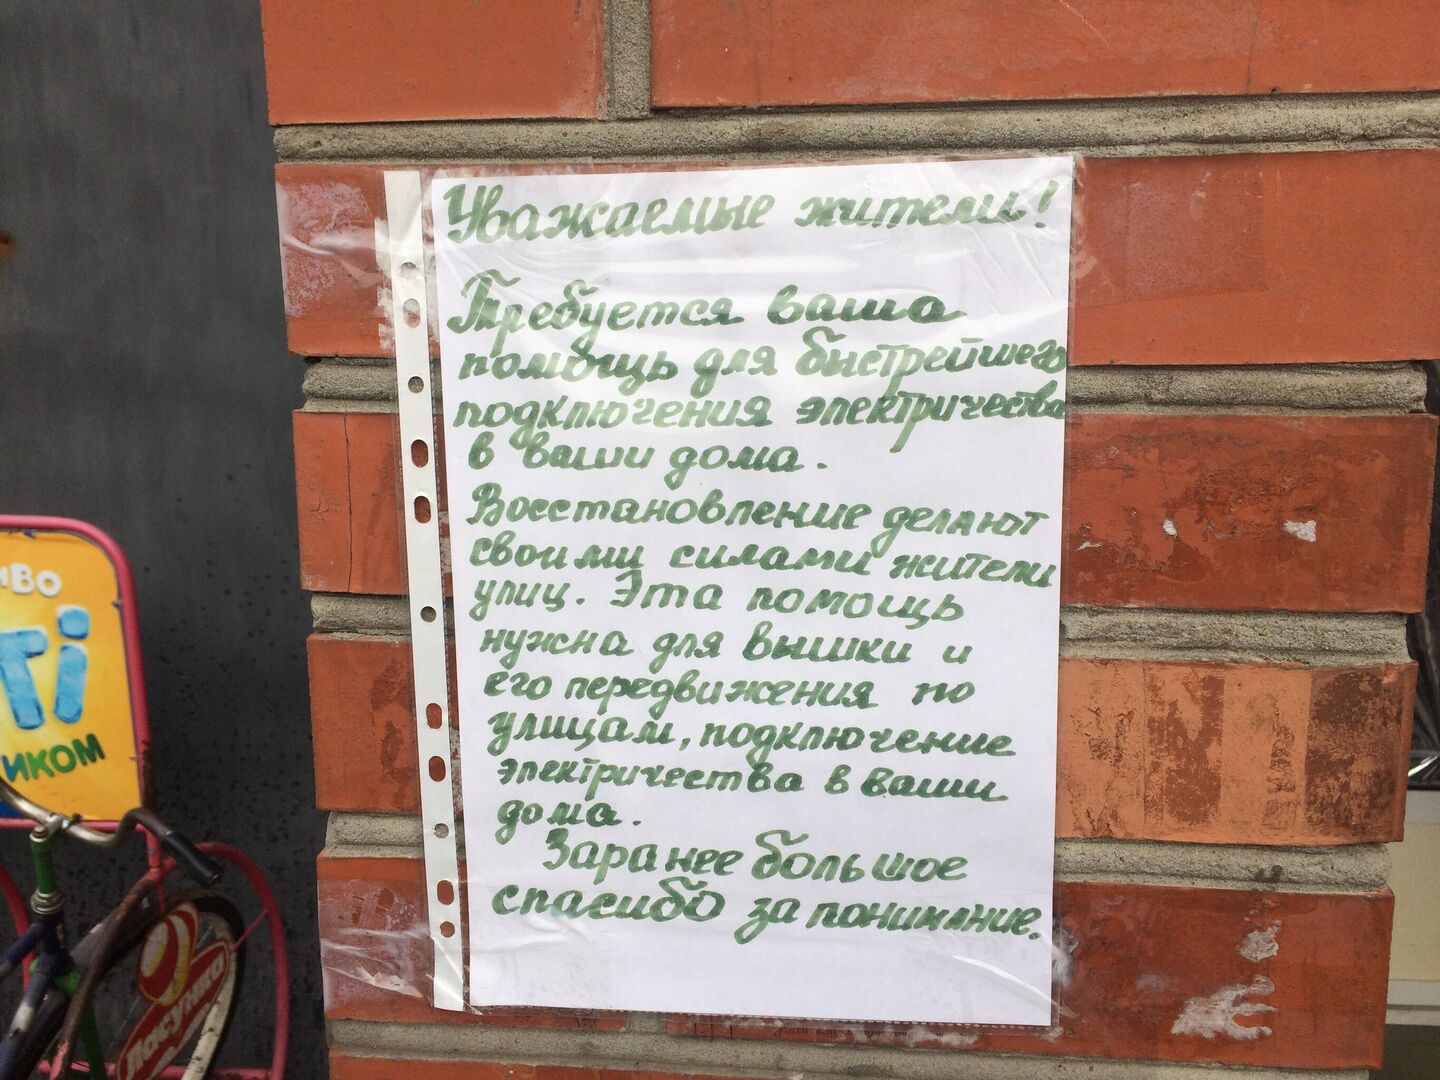 Уважаемые жители!
Требуется ваша
помощь для быстрейшего
подключения электричества
в ваши дома.
Восстановление делают
своими силами жители
улиц. Эта помощь
нужна для вышки и
его передвижения по
улицам, подключение
электричества в ваши
дома.
Заранее большое
спасибо за понимание.
иво
Ti
иком
Ласунка